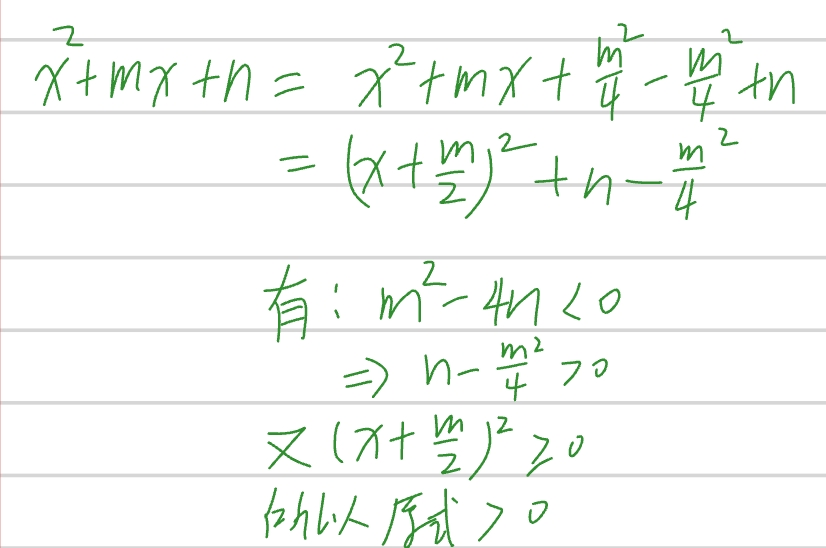 x² + mx + n = x² + mx + m²/4 - m²/4 + n
= (x + m/2)² + n - m²/4
有: m² - 4n < 0
⇒ n - m²/4 > 0
又 (x + m/2)² ≥ 0
所以原式 > 0